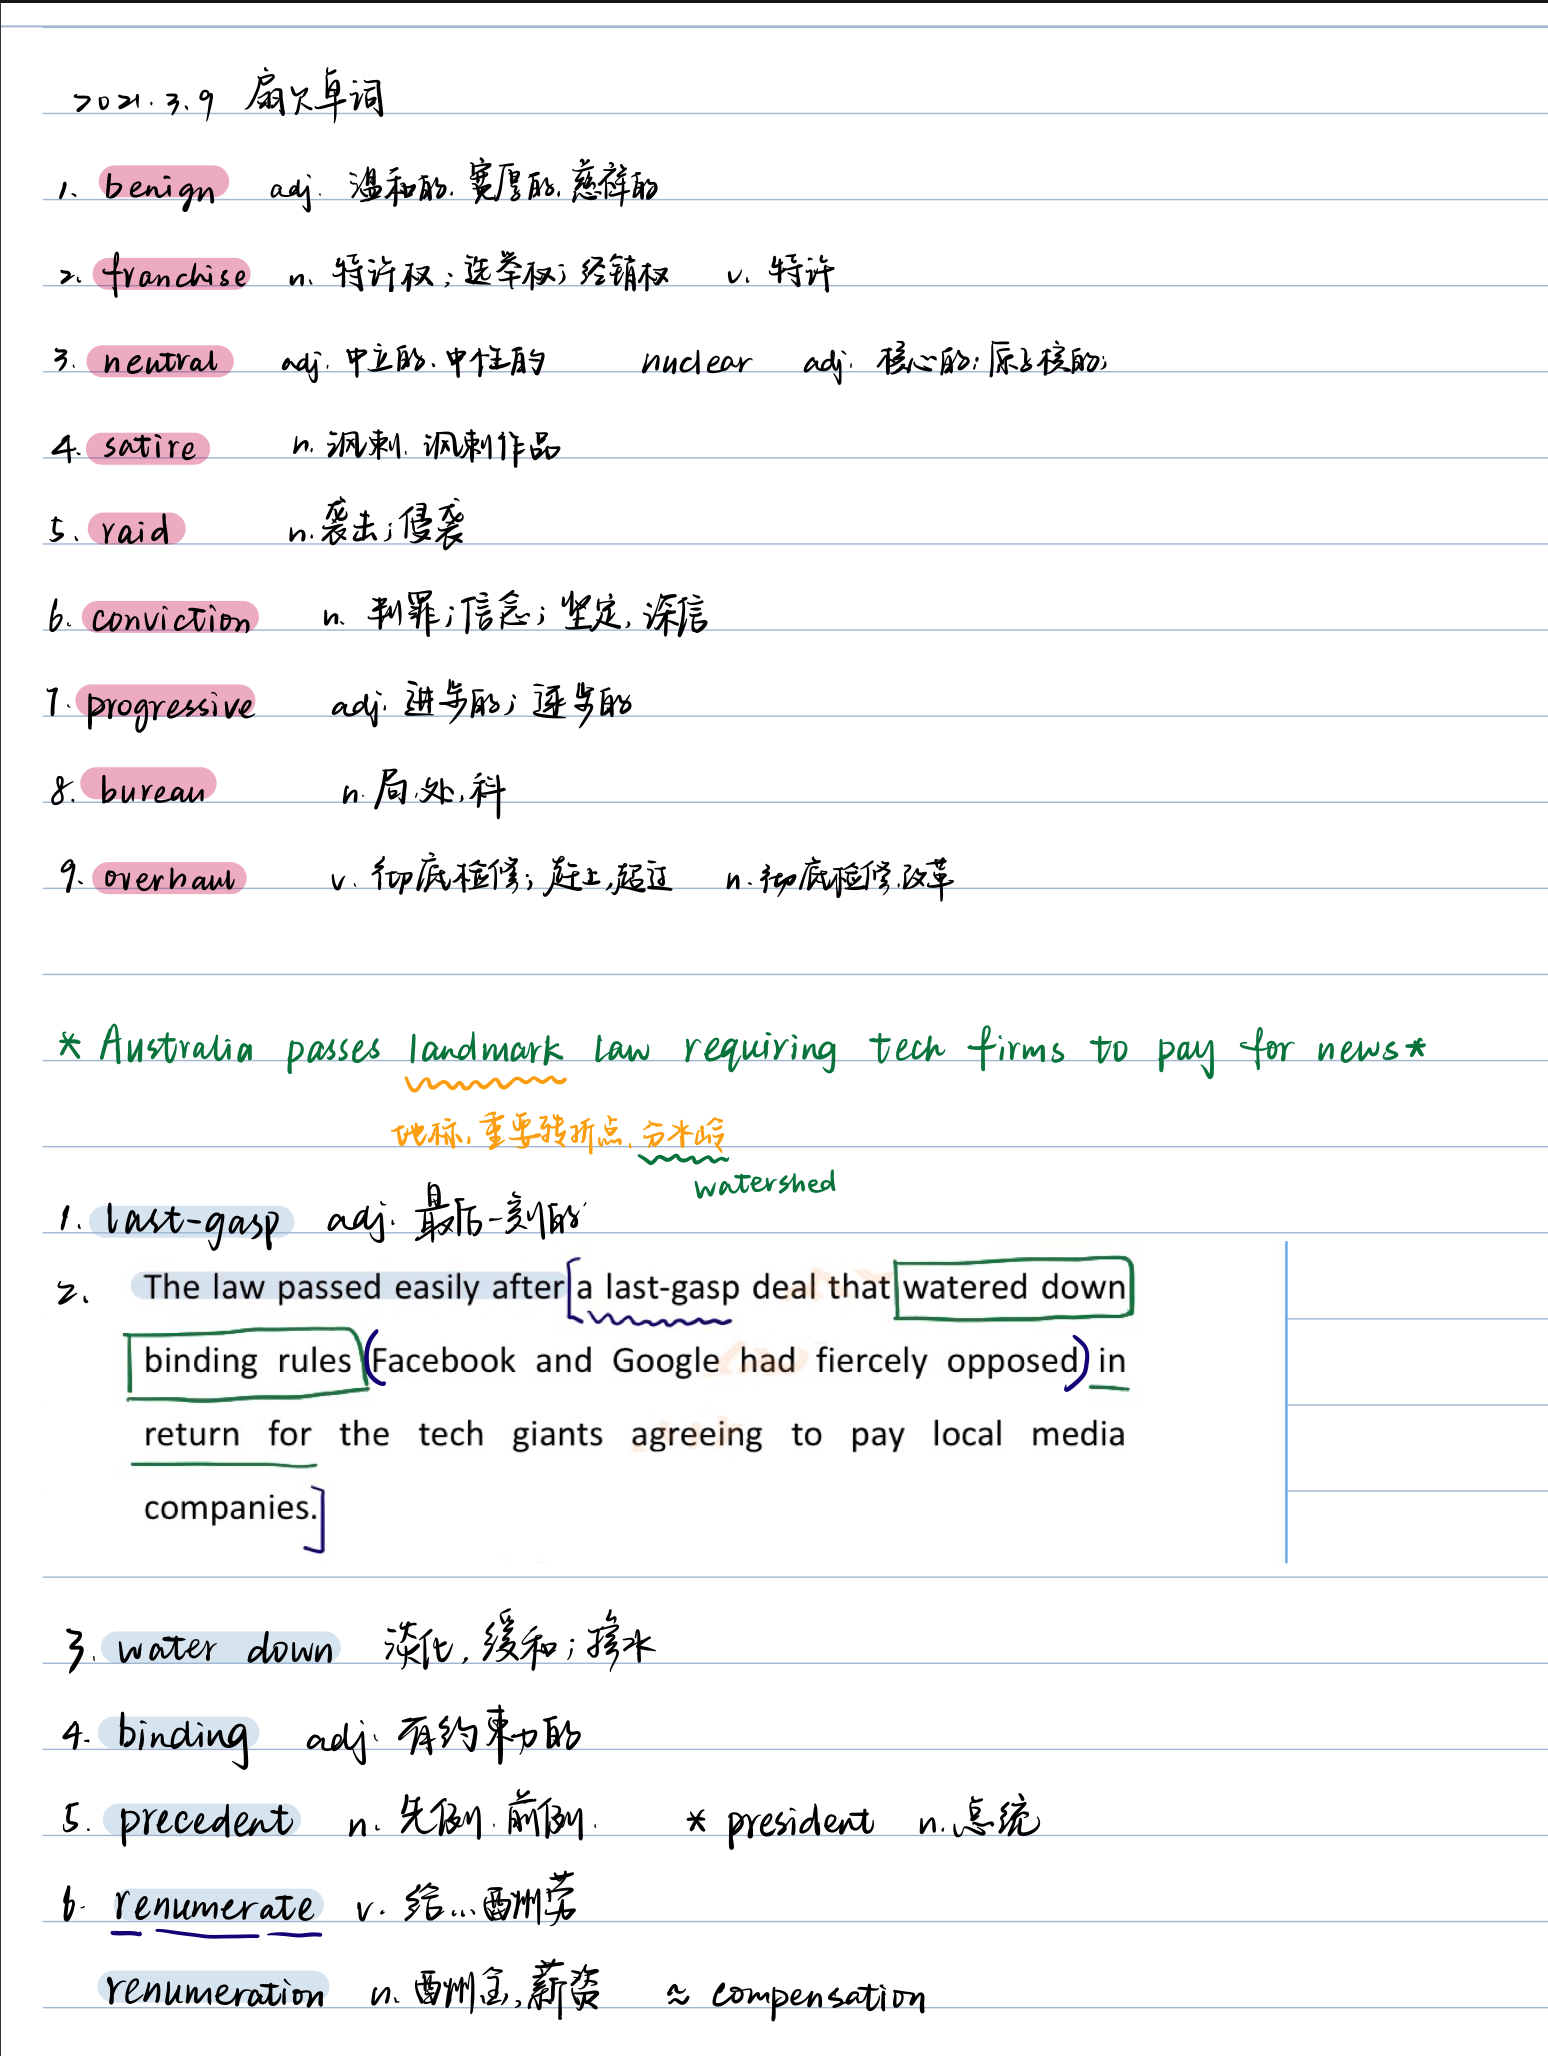 2021.3.9 扇贝单词
1. benign adj. 温和的、宽厚的、慈祥的
2. franchise n. 特许权；选举权；经销权 v. 特许
3. neutral adj. 中立的、中性的 nuclear adj. 核心的；原子核的；
4. satire n. 讽刺、讽刺作品
5. raid n. 袭击；侵袭
6. conviction n. 判罪；信念；坚定，深信
7. progressive adj. 进步的；逐步的
8. bureau n. 局，处，科
9. overhaul v. 彻底检修；赶上，超过 n. 彻底检修、改革
* Australia passes landmark law requiring tech firms to pay for news *
地标，重要转折点、分水岭
watershed
1. last-gasp adj. 最后一刻的
2. The law passed easily after [a last-gasp deal that watered down
binding rules (Facebook and Google had fiercely opposed) in
return for the tech giants agreeing to pay local media
companies.]
3. water down 淡化，缓和；掺水
4. binding adj. 有约束力的
5. precedent n. 先例、前例. * president n. 总统
6. renumerate v. 给...酬劳
renumeration n. 酬金，薪资 ≈ compensation